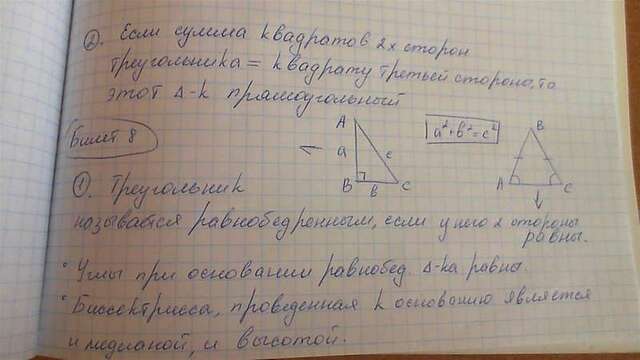 ②. Если сумма квадратов 2х сторон
треугольника = квадрату третьей стороны, то
этот Δ-к прямоугольный
Билет 8
A
a
c
B
в
C
a² + в² = c²
B
A
C
①. Треугольник
называется равнобедренным, если у него 2 стороны
равны.
• Углы при основании равнобед. Δ-ка равны
• Биссектрисса, проведенная к основанию является
и медианой, и высотой.